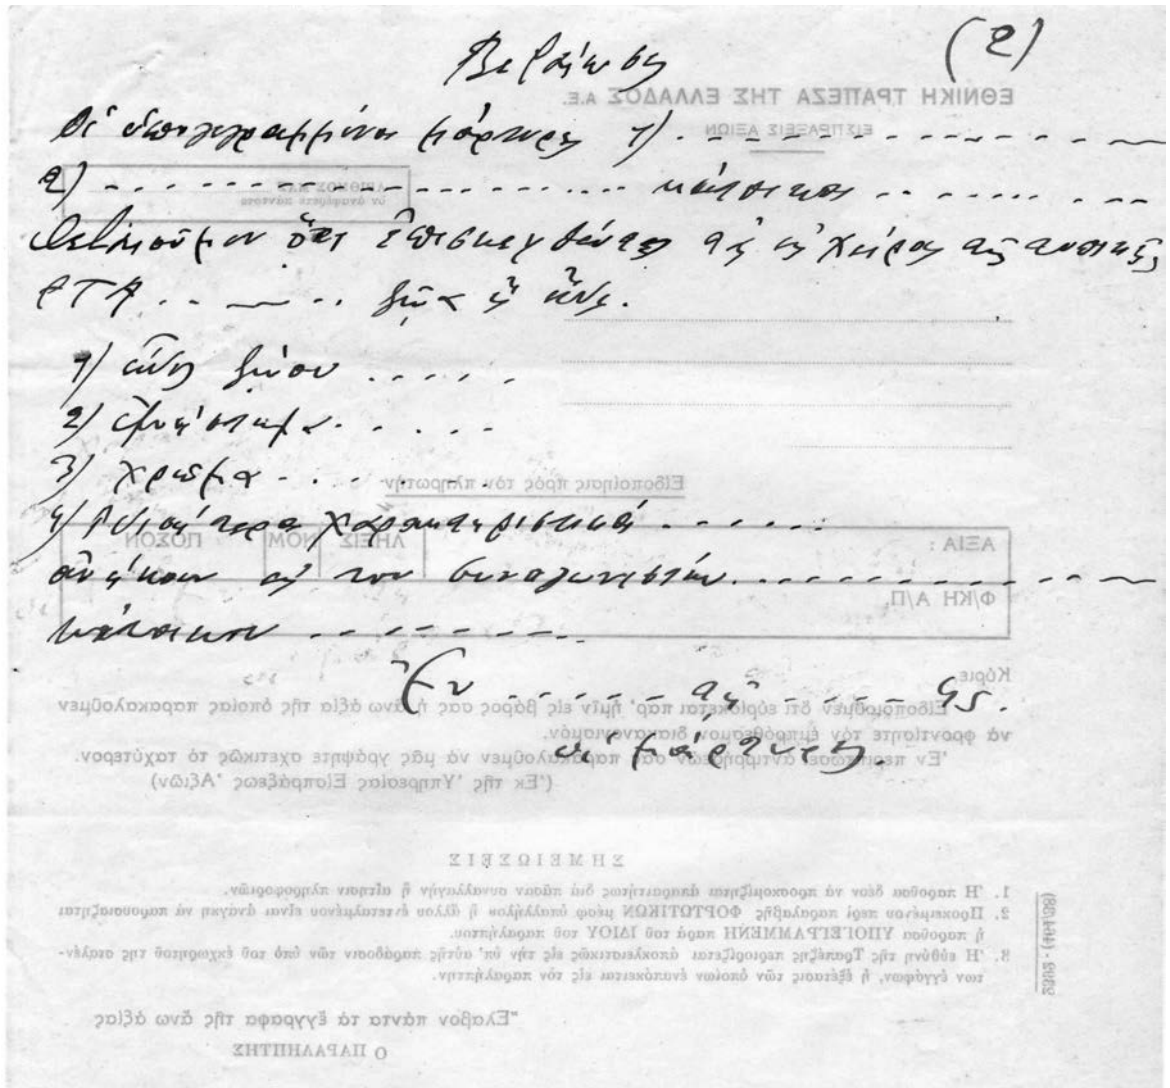 Βεβαίωσις
(2)
Οἱ ὑπογεγραμμένοι μάρτυρες 1) . - - - - - - - - - - -
2) - - - - - - - - - - - - - - .... κάτοικοι .. - ..... - - -
ὅτι ἐπισκεφθέντες τὰς εἰς χεῖρας τῆς
ΕΤΑ . . - — . . ζῶα ἢ
1) εἶδος ζώου . . - - - .
2) ἀνάστημα . . . . .
3) χρῶμα - . . . - .
4) ἰδιαίτερα χαρακτηριστικά . - - - - . .
ἀνήκουν εἰς τὸν συναγωνιστήν . . - - - - - - - -
κάτοικον - - - - - - - - .
Ἐν - - - - - - τῇ - - - - - 45.
οἱ μάρτυρες
ΕΘΝΙΚΗ ΤΡΑΠΕΖΑ ΤΗΣ ΕΛΛΑΔΟΣ Α.Ε.
ΕΙΣΠΡΑΞΕΙΣ ΑΞΙΩΝ
ὃν ἀναφέρετε πάντοτε
Εἰδοποίησις πρὸς τὸν πληρωτήν
ΑΞΙΑ : ΛΗΞΙΣ ΝΟΜ ΠΟΣΟΝ
Φ/ΚΗ Α/Π.
Κύριε,
Εἰδοποιοῦμεν ὅτι εὑρίσκεται παρ' ἡμῖν εἰς βάρος σας ἡ ἄνω ἀξία τῆς ὁποίας παρακαλοῦμεν
νὰ φροντίσητε τὸν ἐμπρόθεσμον διακανονισμόν.
Ἐν περιπτώσει ἀντιρρήσεών σας παρακαλοῦμεν νὰ μᾶς γράψητε σχετικῶς τὸ ταχύτερον.
(Ἐκ τῆς Ὑπηρεσίας Εἰσπράξεως Ἀξιῶν)
ΣΗΜΕΙΩΣΕΙΣ
1. Ἡ παροῦσα δέον νὰ προσκομίζηται ἀπαραιτήτως διὰ πᾶσαν συναλλαγὴν ἢ αἴτησιν πληροφοριῶν.
2. Προκειμένου περὶ παραλαβῆς ΦΟΡΤΩΤΙΚΩΝ μέσῳ ὑπαλλήλου ἢ ἄλλου ἐντεταλμένου εἶναι ἀνάγκη νὰ παρουσιάζηται
ἡ παροῦσα ΥΠΟΓΕΓΡΑΜΜΕΝΗ παρὰ τοῦ ΙΔΙΟΥ τοῦ παραλήπτου.
3. Ἡ εὐθύνη τῆς Τραπέζης περιορίζεται ἀποκλειστικῶς εἰς τὴν ὑπ' αὐτῆς παράδοσιν τῶν ὑπὸ τοῦ ἐκχωρητοῦ της σταλέν-
των ἐγγράφων, ἡ ἐξέτασις τῶν ὁποίων ἐναπόκειται εἰς τὸν παραλήπτην.
Ἔλαβον πάντα τὰ ἔγγραφα τῆς ἄνω ἀξίας
Ο ΠΑΡΑΛΗΠΤΗΣ